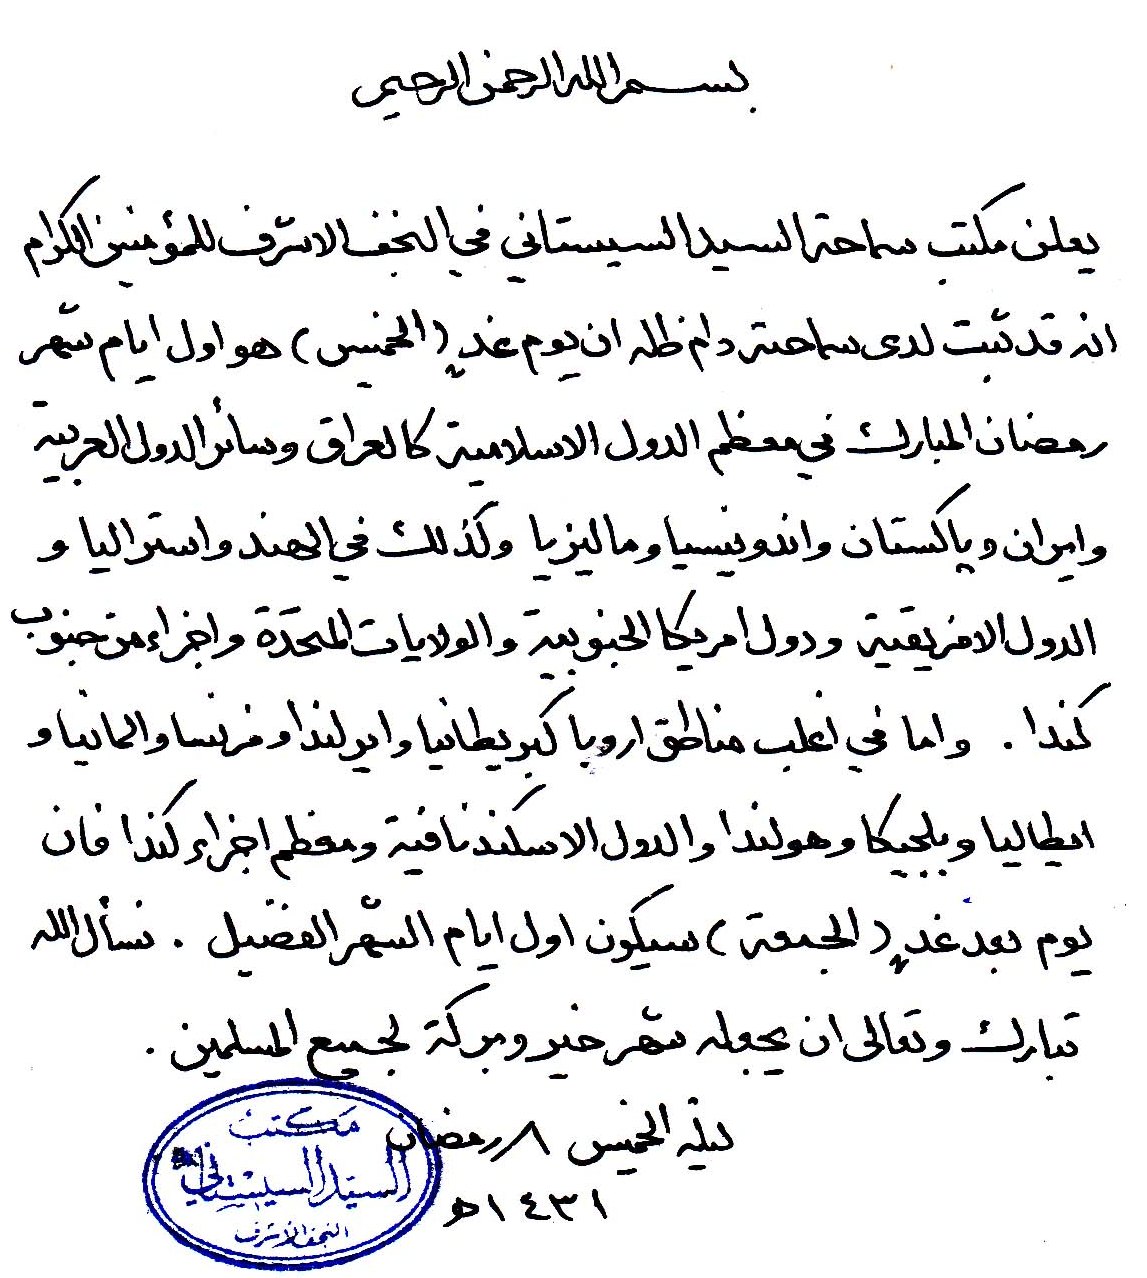 بسم الله الرحمن الرحيم
يعلن مكتب سماحة السيد السيستاني في النجف الاشرف للمؤمنين الكرام
انه قد ثبت لدى سماحته دام ظله ان يوم غدٍ (الخميس) هو اول ايام شهر
رمضان المبارك في معظم الدول الاسلامية كالعراق وسائر الدول العربية
وايران وپاكستان واندونيسيا وماليزيا وكذلك في الهند واستراليا و
الدول الافريقية ودول امريكا الجنوبية والولايات المتحدة واجزاء من جنوب
كندا . واما في اغلب مناطق اروپا كبريطانيا وايرلندا وفرنسا والمانيا و
ايطاليا وبلجيكا وهولندا والدول الاسكندنافية ومعظم اجزاء كندا فان
يوم بعد غدٍ (الجمعة) سيكون اول ايام الشهر الفضيل . نسأل الله
تبارك وتعالى ان يجعله شهر خير وبركة لجميع المسلمين .
ليلة الخميس ١/ رمضان
١٤٣١ هـ
مكتب
السيد السيستاني
النجف الاشرف